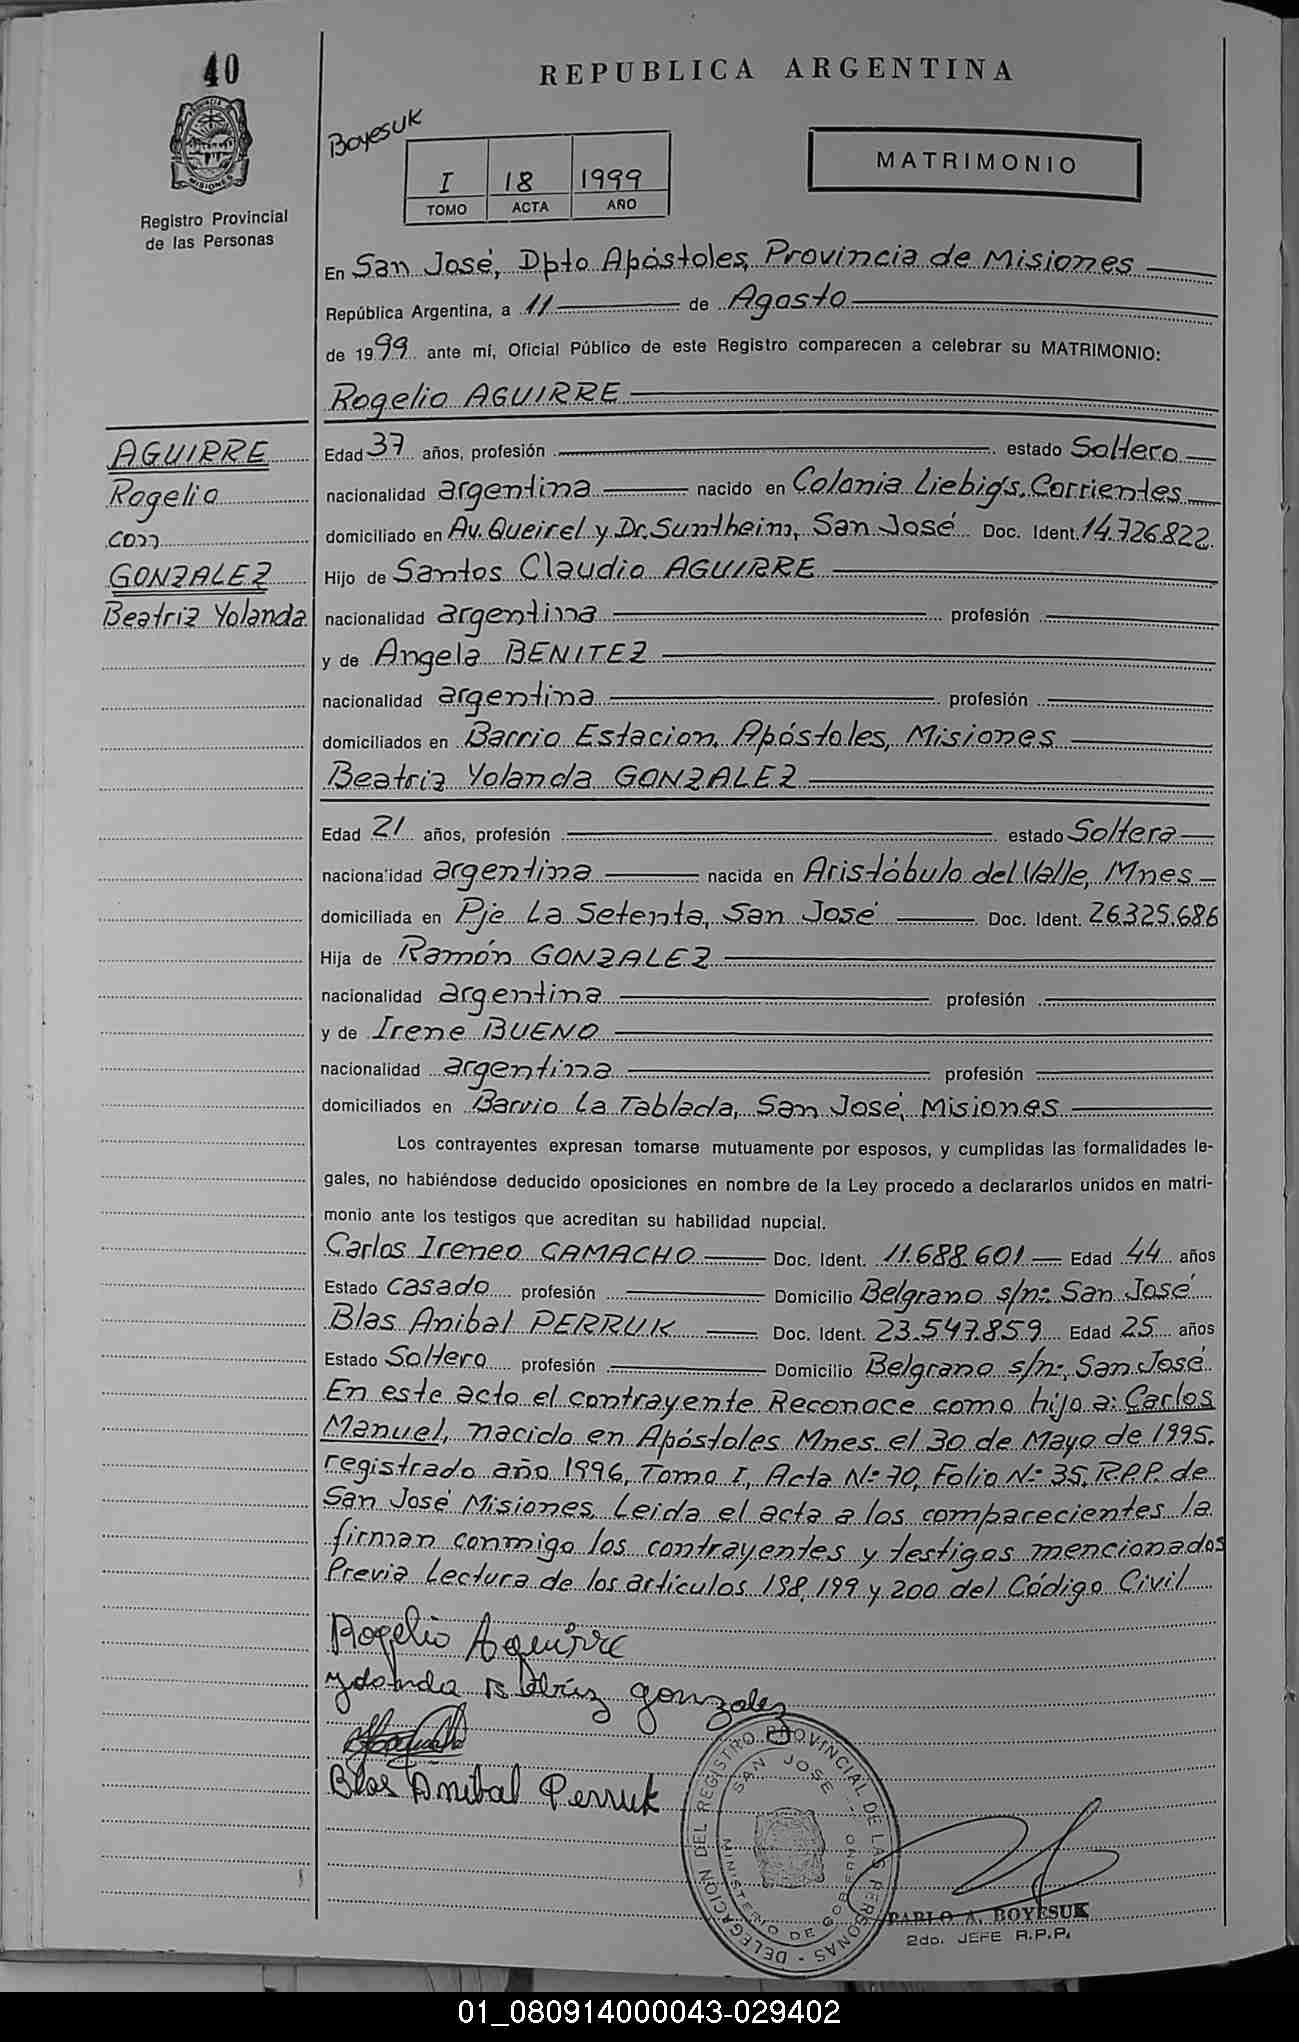 40
REPUBLICA ARGENTINA
Boyesuk
I 18 1999
TOMO ACTA AÑO
MATRIMONIO
MISIONES
Registro Provincial
de las Personas
En San José, Dpto Apóstoles, Provincia de Misiones
República Argentina, a 11 de Agosto
de 1999 ante mí, Oficial Público de este Registro comparecen a celebrar su MATRIMONIO:
Rogelio AGUIRRE
AGUIRRE
Rogelio
con
GONZALEZ
Beatriz Yolanda
Edad 37 años, profesión estado Soltero
nacionalidad argentina nacido en Colonia Liebig's, Corrientes
domiciliado en Av. Queirel y Dr. Suntheim, San José Doc. Ident. 14.726.822
Hijo de Santos Claudio AGUIRRE
nacionalidad argentina profesión
y de Angela BENITEZ
nacionalidad argentina profesión
domiciliados en Barrio Estacion, Apóstoles, Misiones
Beatriz Yolanda GONZALEZ
Edad 21 años, profesión estado Soltera
nacionalidad argentina nacida en Aristóbulo del Valle, Mnes
domiciliada en Pje La Setenta, San José Doc. Ident. 26.325.686
Hija de Ramón GONZALEZ
nacionalidad argentina profesión
y de Irene BUENO
nacionalidad argentina profesión
domiciliados en Barrio La Tablada, San José, Misiones
Los contrayentes expresan tomarse mutuamente por esposos, y cumplidas las formalidades le-
gales, no habiéndose deducido oposiciones en nombre de la Ley procedo a declararlos unidos en matri-
monio ante los testigos que acreditan su habilidad nupcial.
Carlos Ireneo CAMACHO Doc. Ident. 11.688.601 Edad 44 años
Estado Casado profesión Domicilio Belgrano s/n: San José
Blas Anibal PERRUK Doc. Ident. 23.547.859 Edad 25 años
Estado Soltero profesión Domicilio Belgrano s/n:, San José
En este acto el contrayente Reconoce como hijo a: Carlos
Manuel, nacido en Apóstoles Mnes. el 30 de Mayo de 1995.
registrado año 1996, Tomo I, Acta Nº 70, Folio Nº 35, R.P.P. de
San José Misiones. Leida el acta a los comparecientes la
firman conmigo los contrayentes y testigos mencionados
Previa Lectura de los artículos 198, 199 y 200 del Código Civil
Rogelio Aguirre
Yolanda Beatriz gonzalez
Blas Anibal Perruk
DELEGACION DEL REGISTRO PROVINCIAL DE LAS PERSONAS -
SAN JOSE -
MINISTERIO DE GOBIERNO
PABLO A. BOYESUK
2do. JEFE R.P.P.
01_080914000043-029402